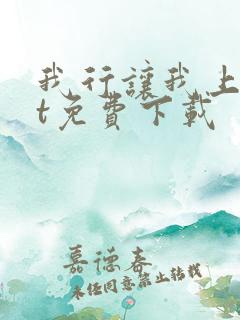 我行讓我上
t免費下載
嘉德春
未经同意禁止转载